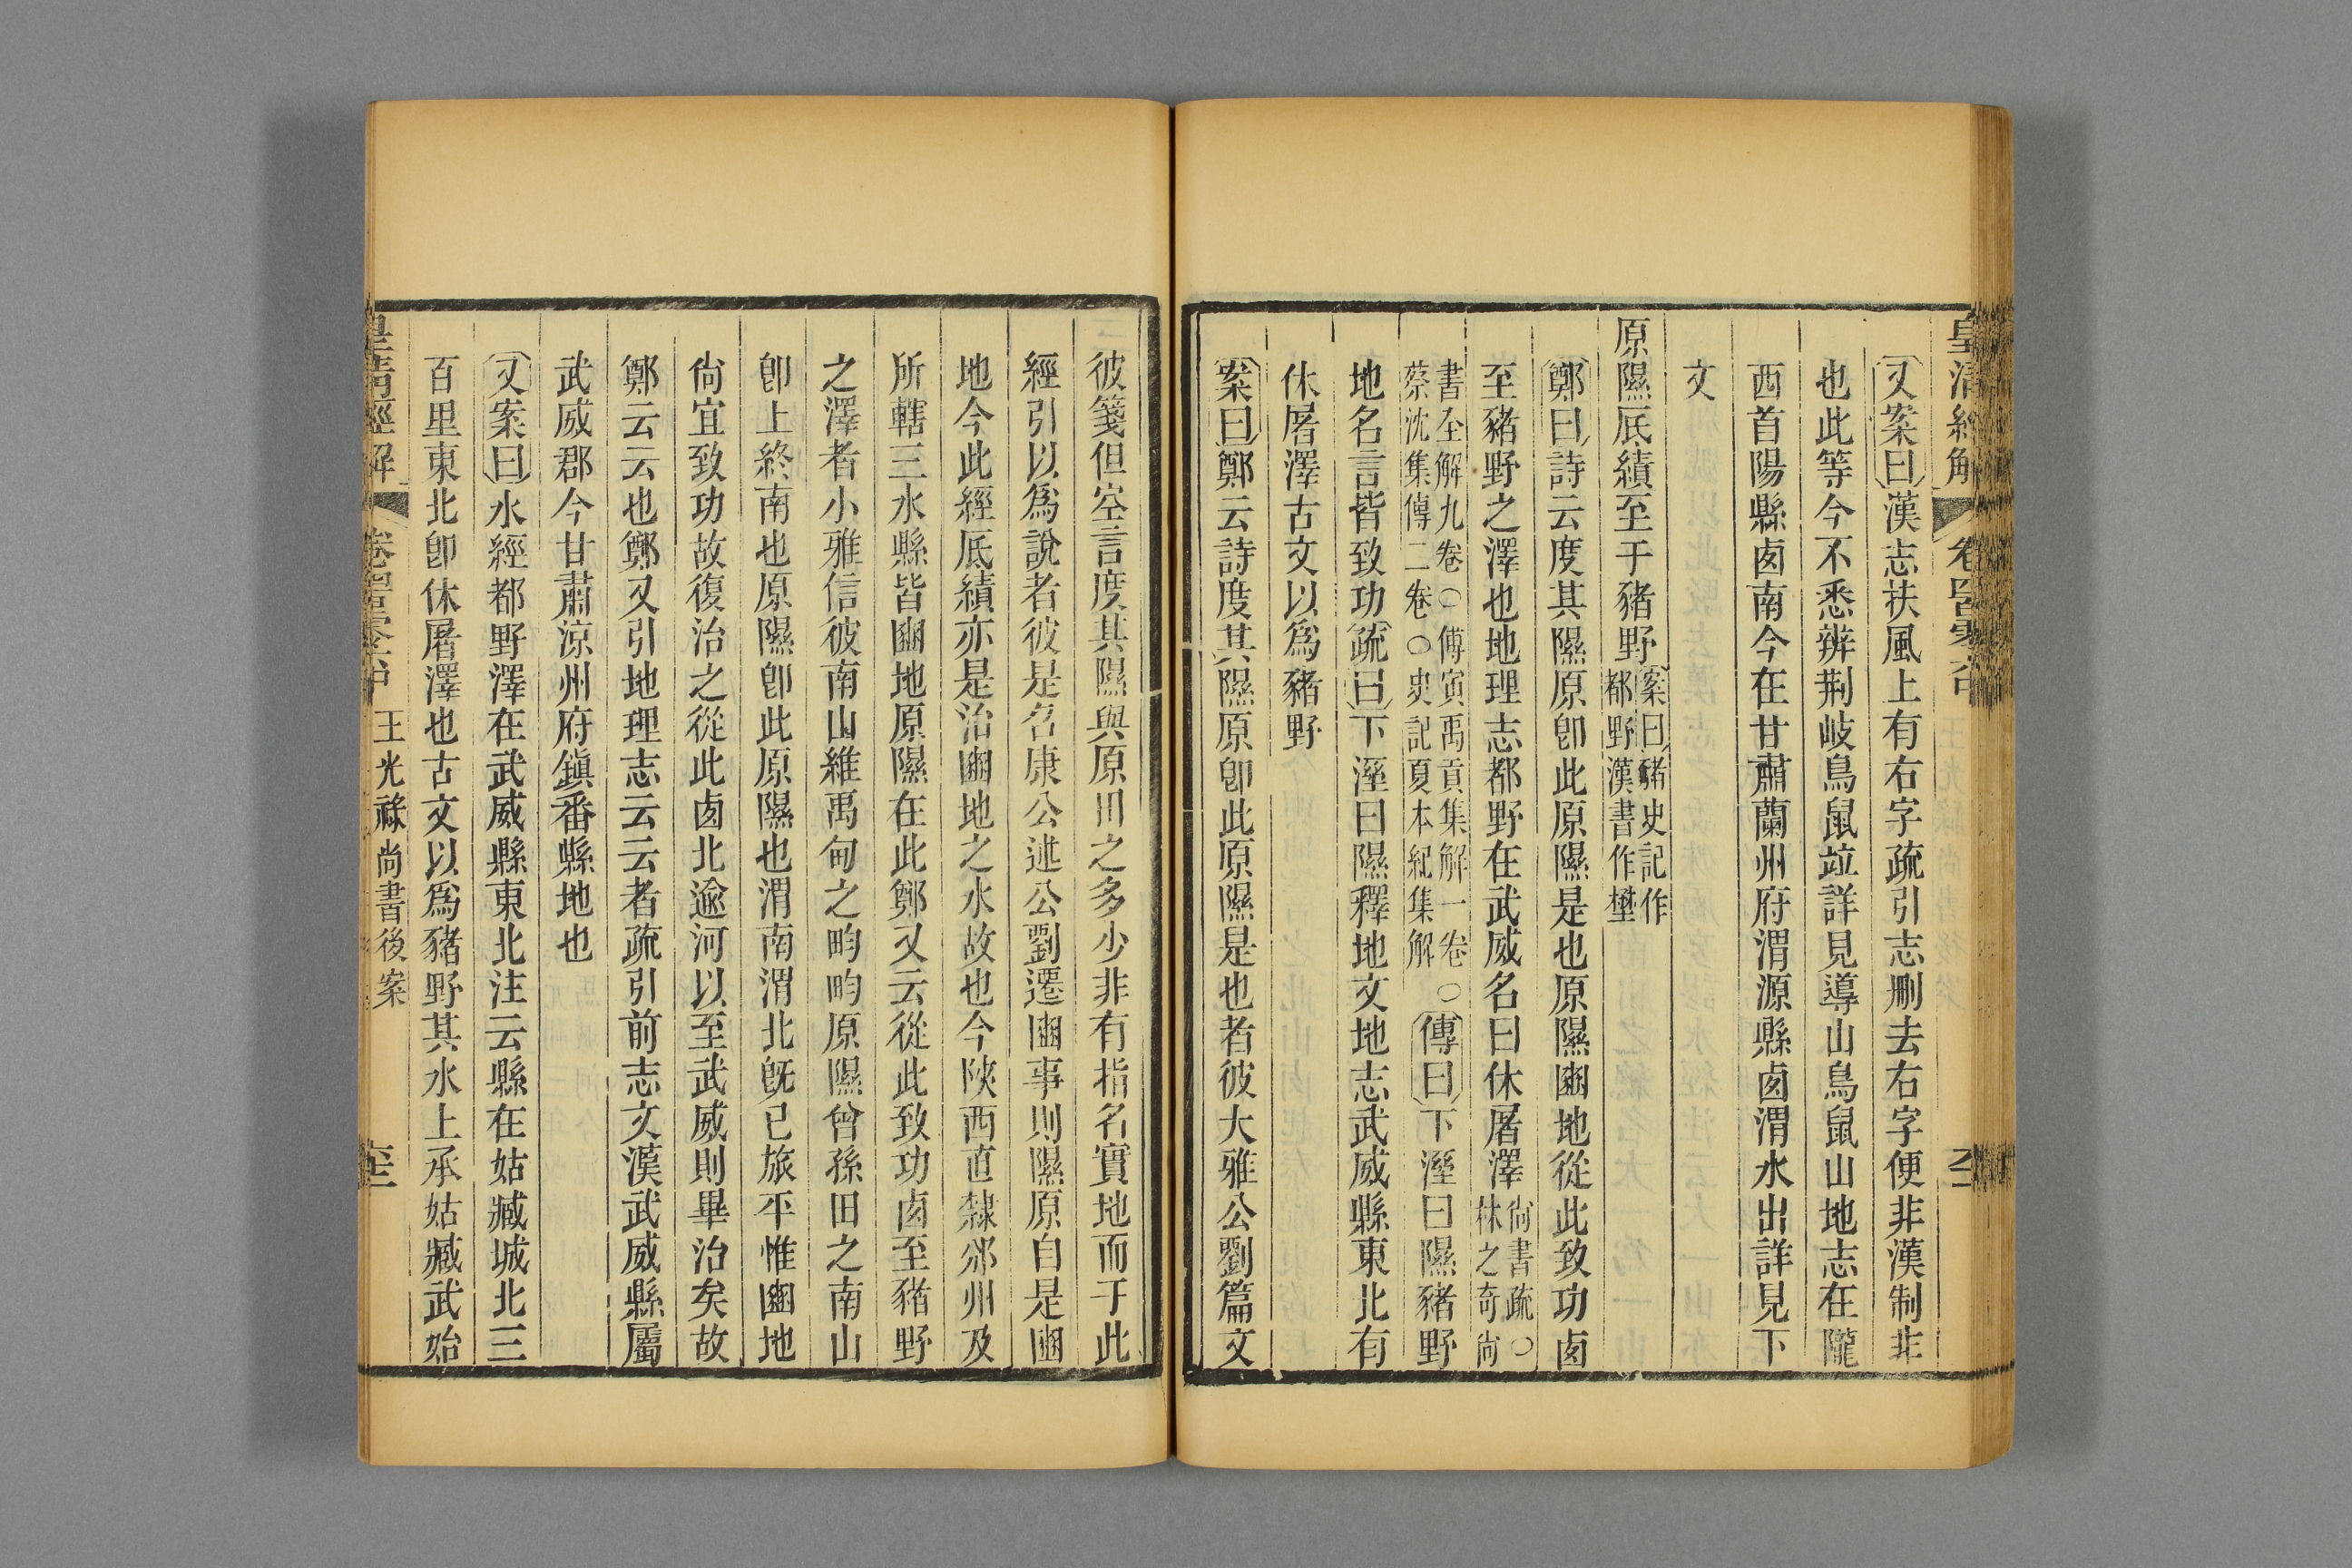 皇清經解
又案曰漢志扶風上有右字疏引志刪去右字便非漢制非
也此等今不悉辨荆岐鳥鼠竝詳見導山鳥鼠山地志在隴
西首陽縣卥南今在甘肅蘭州府渭源縣卥渭水出詳見下
文
原隰厎績至于豬野案曰豬史記作都野漢書作壄
鄭曰詩云度其隰原卽此原隰是也原隰豳地從此致功卥
至豬野之澤也地理志都野在武威名曰休屠澤尙書疏○林之奇尙
書全解九卷○傅寅禹貢集解一卷○蔡沈集傳二卷○史記夏本紀集解傳曰下溼曰隰豬野
地名言皆致功疏曰下溼曰隰釋地文地志武威縣東北有
休屠澤古文以爲豬野
案曰鄭云詩度其隰原卽此原隰是也者彼大雅公劉篇文
彼箋但空言度其隰與原田之多少非有指名實地而于此
經引以爲說者彼是召康公述公劉遷豳事則隰原自是豳
地今此經厎績亦是治豳地之水故也今陝西直隸邠州及
所轄三水縣皆豳地原隰在此鄭又云從此致功卥至豬野
之澤者小雅信彼南山維禹甸之畇畇原隰曾孫田之南山
卽上終南也原隰卽此原隰也渭南渭北旣已旅平惟豳地
尙宜致功故復治之從此卥北逾河以至武威則畢治矣故
鄭云云也鄭又引地理志云云者疏引前志文漢武威縣屬
武威郡今甘肅涼州府鎭番縣地也
又案曰水經都野澤在武威縣東北注云縣在姑臧城北三
百里東北卽休屠澤也古文以爲豬野其水上承姑臧武始
皇清經解 王光祿尙書後案